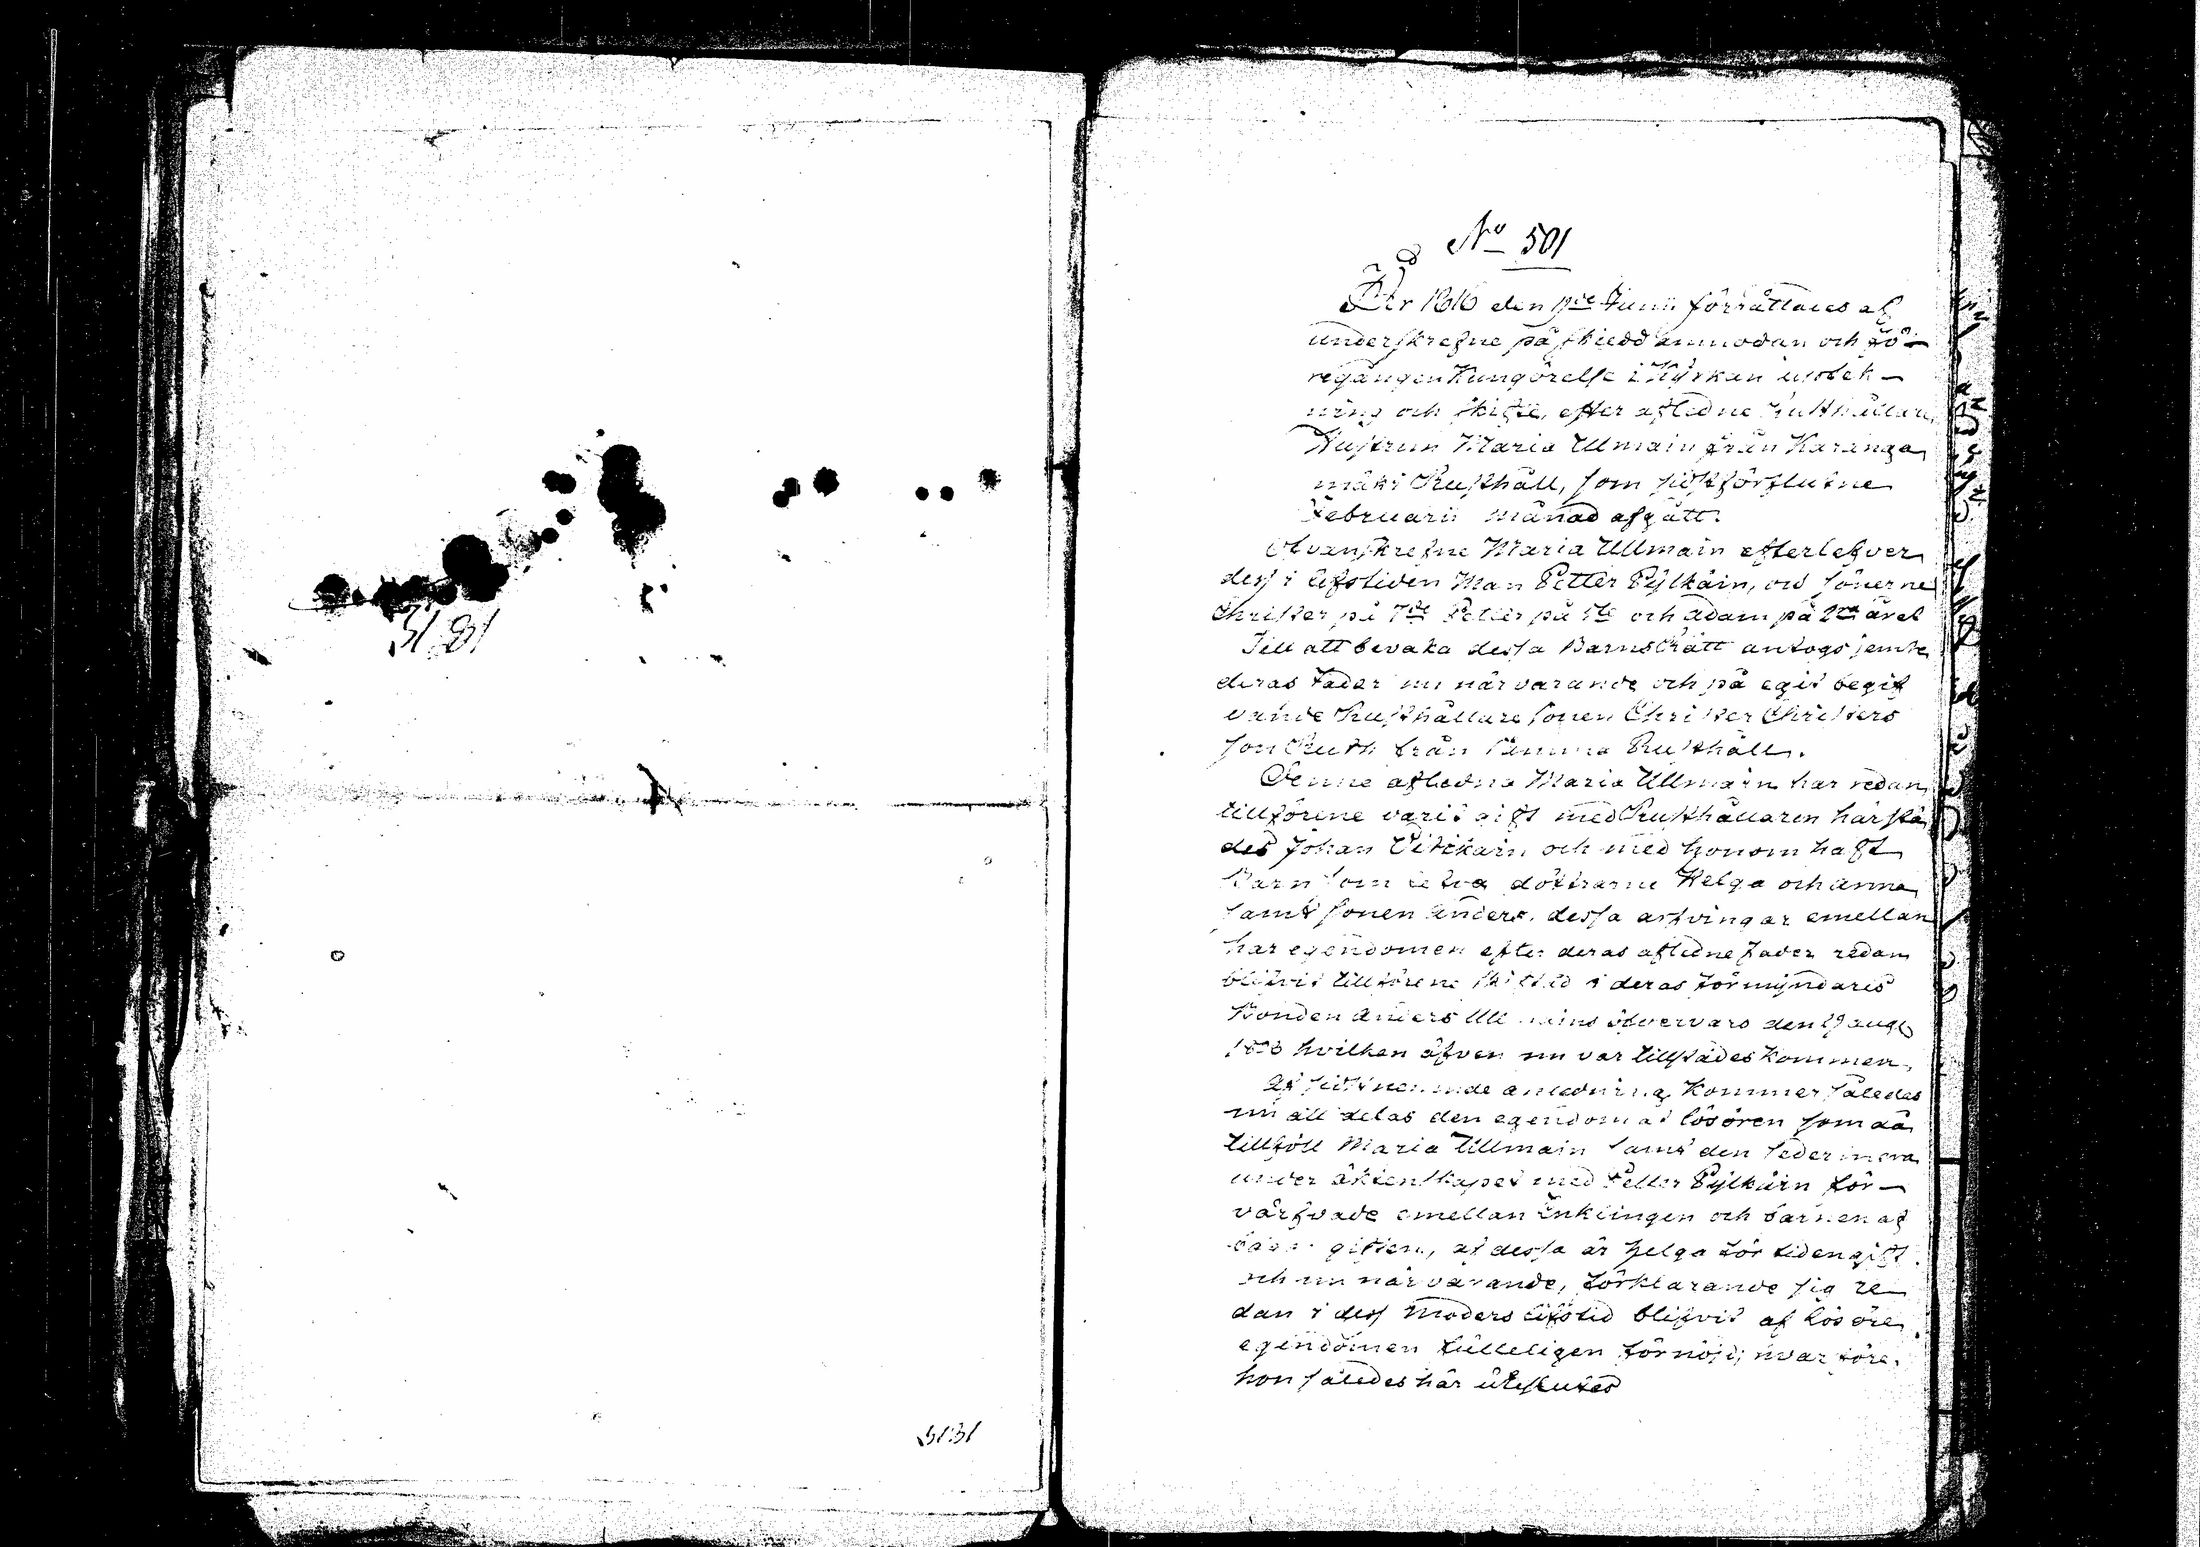 No 501
År 1816 den 1ste Junii förrättades af
underskrefne på skiedd anmodan och fö-
regången Kungörelse i Kyrkan uptek-
ning och skifte, efter afledne Rusthållare
Hustrun Maria Ulmain från Karanga
mäki Rusthåll, som sidstförflutne
Februarii månad afgått.
Ofvanskrefne Maria Ullmain efterlefver
dess i lifstiden Man Petter Pylkäin, och sönerne
Christer på 7de Petter på 5te och Adam på 2dra året
Till att bevaka dessa Barns Rätt antogs jemte
deras Fader nu närvarande och på egit begif
vande Rusthållare sonen Christer Christers
son Ruth från samma Rusthåll.
Denne afledna Maria Ullmain har redan
tillförene varit gift med Rusthållaren härstä
des Johan Vitikain och med honom haft
Barn som lefva döttrarne Helga och Anna
samt sonen Anders. dessa arfvingar emellan
har egendomen efter deras afledne fader redan
blifvit tillförene skiftad i deras förmyndares
Bonden Anders Ullmains öfvervaro den 29 aug
hvilken äfven nu var tillstädes kommen.
Af sidstnemnde anledning kommer således
nu att delas den egendom af lösören som då
tillföll Maria Ullmain samt den sedermera
under äktenskapet med Petter Pylkäin för-
värfvade emellan Enklingen och barnen af
giften, af dessa är helga för tiden gift
och nu närvarande, förklarande sig re
dan i dess Moders lifstid blifvit af lösöre
egendomen fulleligen förnöjd; hvarföre
hon således här uteslutes